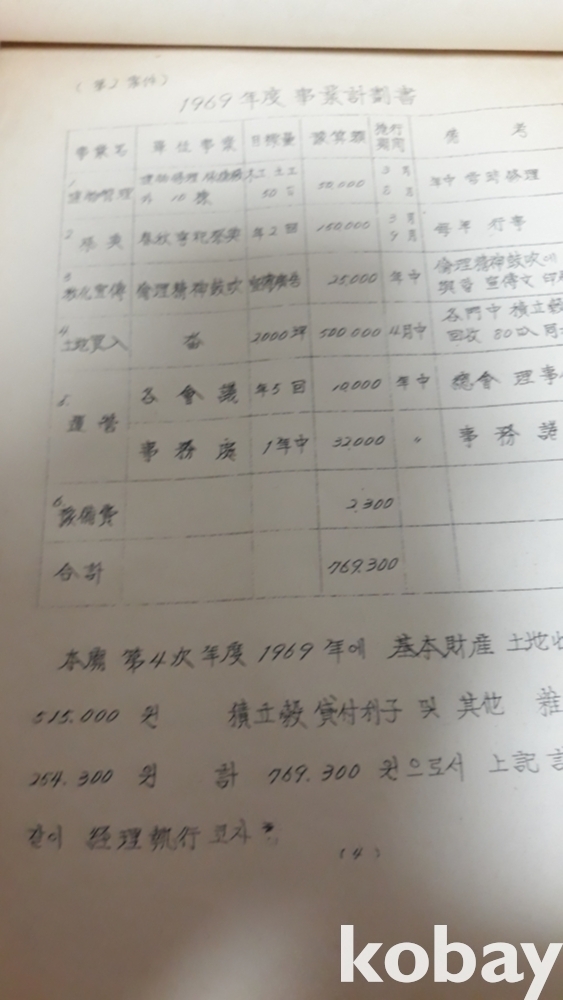 (第2案件)
1969 年度 事業計劃書
事業名 單位事業 目標量 豫算額 施行期間 備 考
1 建物管理 外 10 棟 50 50,000 3月 年中 常時修理
2 祭典 春秋享祀祭典 年2回 150,000 3月 9月 每年 行事
3 敎化宣傳 倫理精神鼓吹 25,000 年中 倫理精神鼓吹에
宣傳文 印刷
4 土地買入 畓 2000坪 500,000 4月中 各門中 積立穀
回收 80叺
5 運營 各會議 年5回 10,000 年中 總會 理事
事務 1年中 32,000 〃 事務諸
6 設備費 2,300
合計 769,300
本 第4次年度 1969年에 基本財産 土地收
515.000 원 積立穀 貸付利子 및 其他 雜
254.300 원 計 769.300 원으로서 上記 計
같이 経理執行코자 함
(4)
kobay